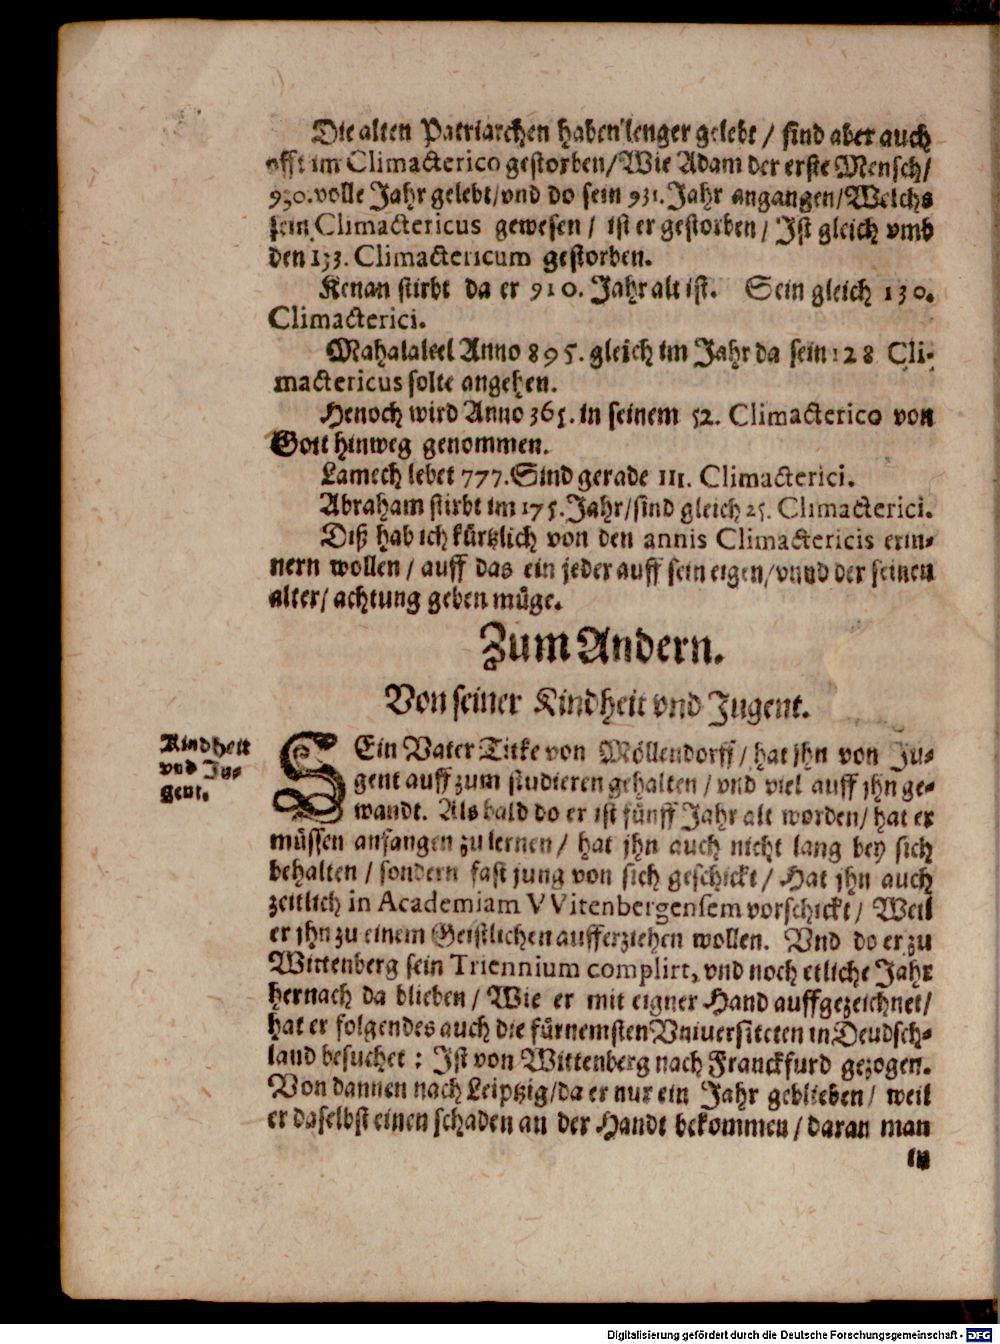 Die alten Patriarchen haben lenger gelebt / sind aber auch
offt im Climacterico gestorben/Wie Adam der erste Mensch/
930.volle Jahr gelebt/vnd do sein 931.Jahr angangen/Welchs
sein Climactericus gewesen / ist er gestorben / Ist gleich vmb
den 133. Climactericum gestorben.
Kenan stirbt da er 910. Jahr alt ist. Sein gleich 130.
Climacterici.
Mahalaleel Anno 895. gleich im Jahr da sein 128 Cli-
mactericus solte angehen.
Henoch wird Anno 365. in seinem 52. Climacterico von
Gott hinweg genommen.
Lamech lebet 777.Sind gerade 111. Climacterici.
Abraham stirbt im 175.Jahr/sind gleich 25. Climacterici.
Diß hab ich kürtzlich von den annis Climactericis erin-
nern wollen / auff das ein jeder auff sein eigen/vnnd der seinen
alter/ achtung geben müge.
Zum Andern.
Von seiner Kindheit vnd Jugent.
Kindheit
vnd Ju-
gent.
SEin Vater Titke von Möllendorff / hat jhn von Ju-
gent auff zum studieren gehalten / vnd viel auff jhn ge-
wandt. Als bald do er ist fünff Jahr alt worden/ hat er
müssen anfangen zu lernen / hat jhn auch nicht lang bey sich
behalten / sondern fast jung von sich geschickt / Hat jhn auch
zeitlich in Academiam VVitenbergensem vorschickt / Weil
er jhn zu einem Geistlichen aufferziehen wollen. Vnd do er zu
Wittenberg sein Triennium complirt, vnd noch etliche Jahr
hernach da blieben / Wie er mit eigner Hand auffgezeichnet/
hat er folgendes auch die fürnemsten Vniuersiteten in Deudsch-
land besuchet : Ist von Wittenberg nach Franckfurd gezogen.
Von dannen nach Leiptzig/da er nur ein Jahr geblieben / weil
er daselbst einen schaden an der Handt bekommen / daran man
in
Digitalisierung gefördert durch die Deutsche Forschungsgemeinschaft - DFG